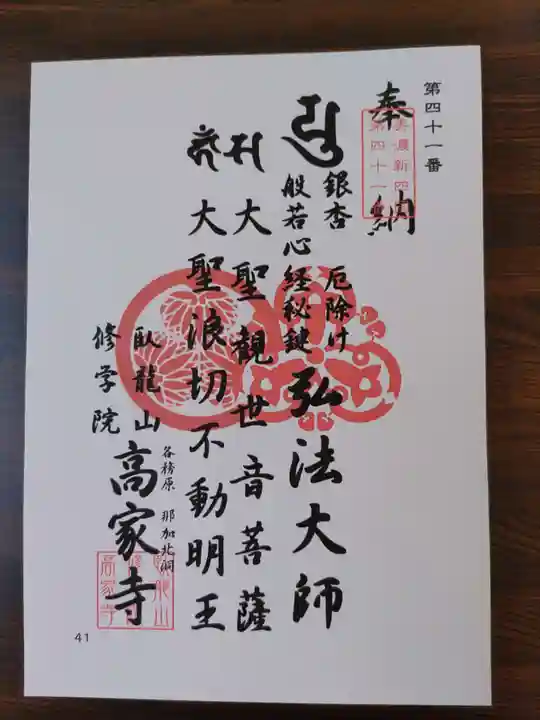 第四十一番
奉納
第四十一
銀杏 厄除け
般若心経秘鍵
弘法大師
大聖観世音菩薩
大聖浪切不動明王
臥龍山
修学院
各務原 那加北洞
高家寺
高家寺
41